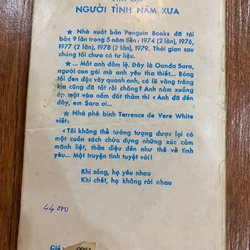 NGƯỜI TÌNH NĂM XƯA
★ Nhà xuất bản Penguin Books đã tái
bản 9 lần trong 5 năm liền : 1974 (2 lần), 1976,
1977 (2 lần), 1978 (2 lần), 1979. Thời gian sau
chúng tôi chưa có tư liệu.
★ ... Mắt anh dẫm lệ. Đây là Oanda Sara,
người con gái mà anh yêu tha thiết... Bóng
tối đen đặc vây quanh anh, cả vầng trăng
kia cũng đã tắt rồi chăng? Anh nằm xuống
úp mặt vào nấm đất thầm thì «Anh đã đến
đây, em Sara ơi...
★ Nhà phê bình Terrence de Vere White
viết:
«Tôi không thể tưởng tượng được lại có
một cuốn sách chứa đựng những xúc cảm
mãnh liệt, thần diệu đến như thế về tình
yêu... Một truyện tình tuyệt vời!
Khi sống, họ yêu nhau
Khi chết, họ không rời nhau
44 000
Giá